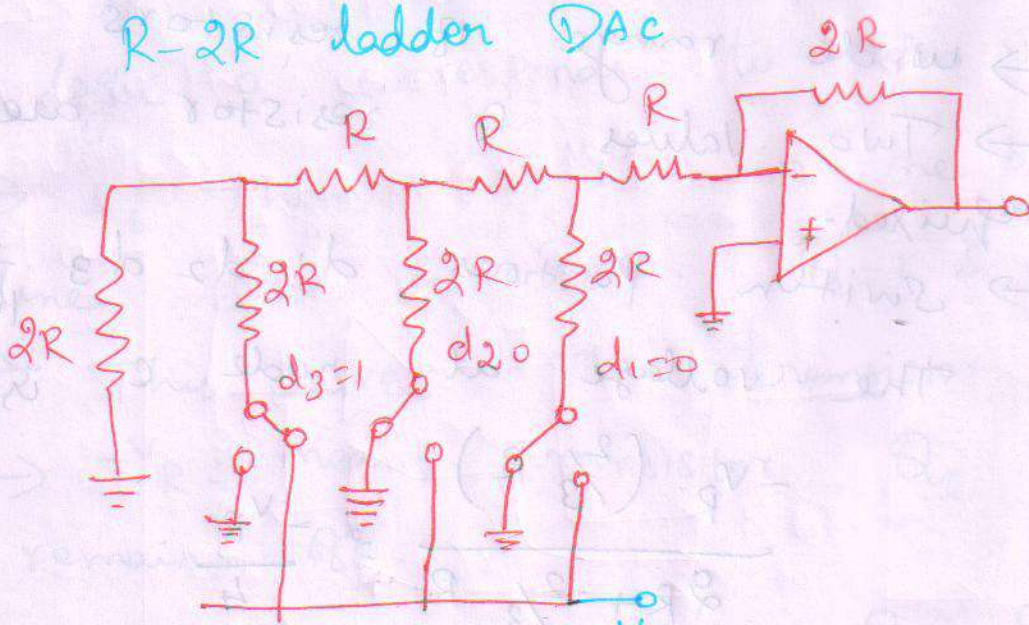 R-2R ladder DAC
2R
R
R
R
-
+
2R
2R
2R
2R
d3=1
d2 0
d1=0